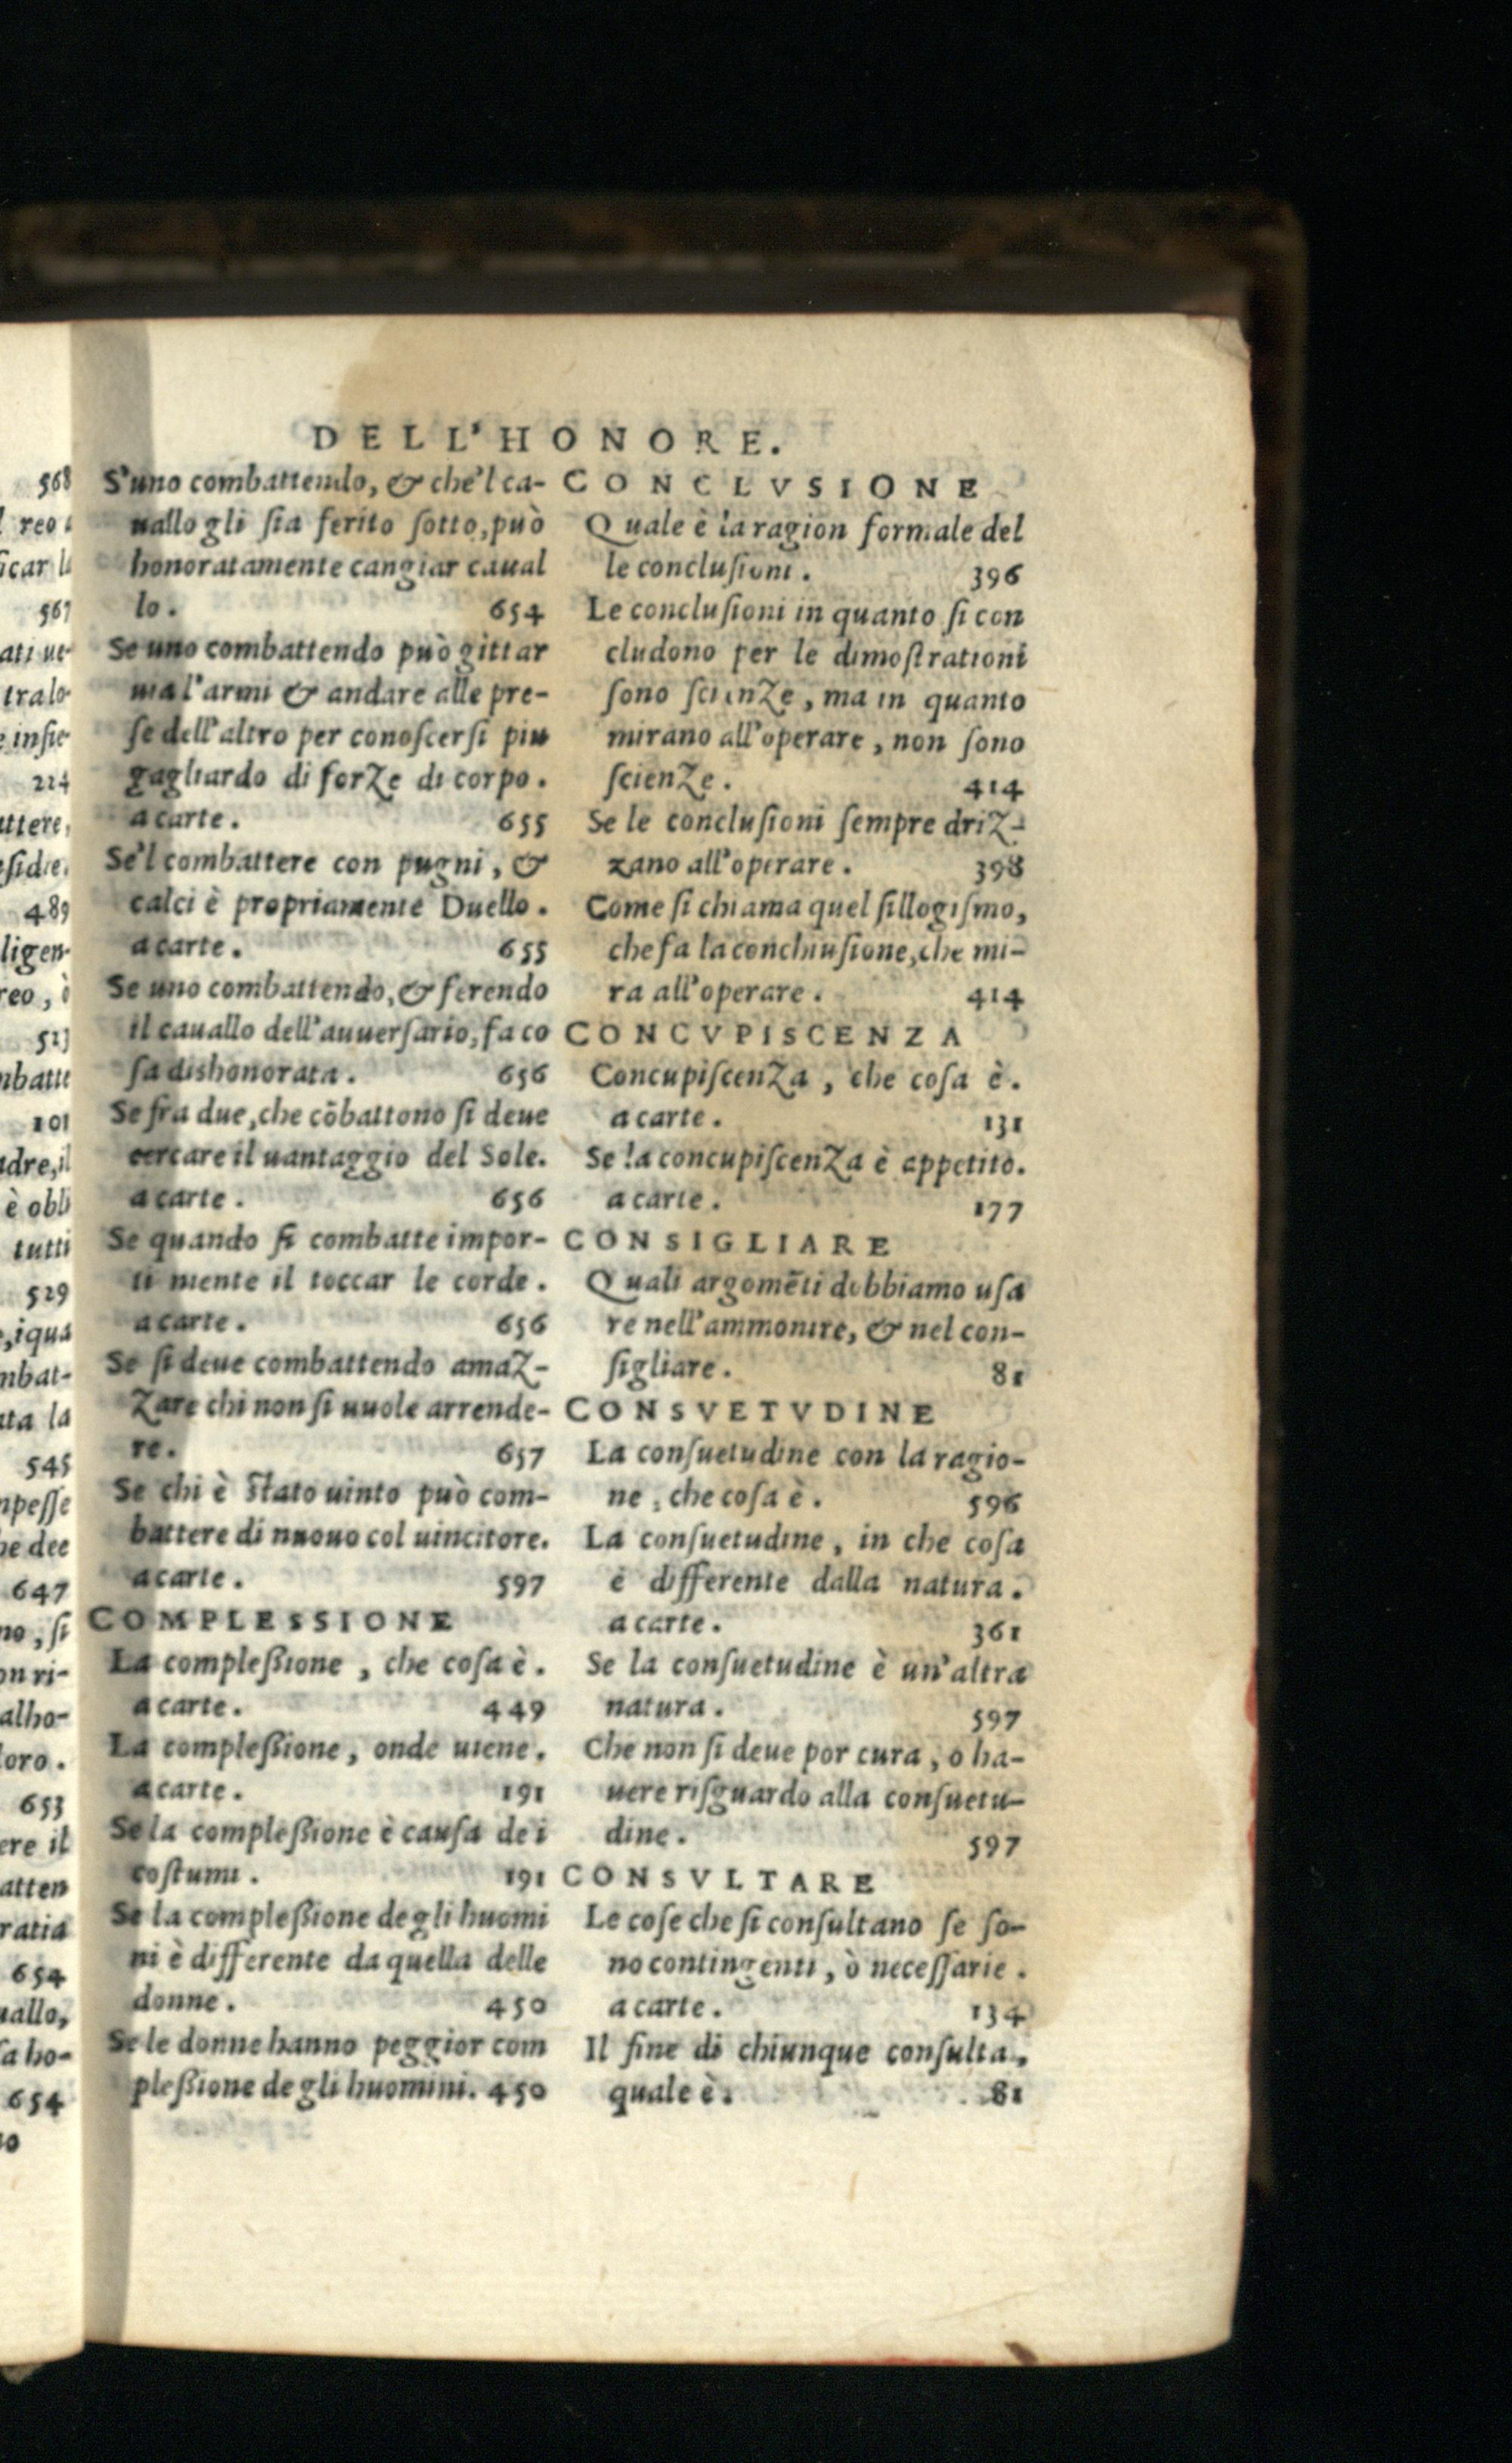 DELL'HONORE.
S'uno combattendo, & che'l ca-
uallo gli sia ferito sotto, può
honoratamente cangiar caual
lo. 654
Se uno combattendo può gittar
uia l'armi & andare alle pre-
se dell'altro per conoscersi piu
gagliardo di forze di corpo.
a carte. 655
Se'l combattere con pugni, &
calci è propriamente Duello.
a carte. 655
Se uno combattendo, & ferendo
il cauallo dell'auuersario, fa co
sa dishonorata. 656
Se fra due, che cōbattono si deue
cercare il uantaggio del Sole.
a carte. 656
Se quando si combatte impor-
ti niente il toccar le corde.
a carte. 656
Se si deue combattendo amaz-
zare chi non si uuole arrende-
re. 657
Se chi è stato uinto può com-
battere di nuouo col uincitore.
a carte. 597
COMPLESSIONE
La complessione, che cosa è.
a carte. 449
La complessione, onde uiene.
a carte. 191
Se la complessione è causa de i
costumi. 191
Se la complessione degli huomi
ni è differente da quella delle
donne. 450
Se le donne hanno peggior com
plessione degli huomini. 450
CONCLVSIONE
Quale è la ragion formale del
le conclusioni. 396
Le conclusioni in quanto si con
cludono per le dimostrationi
sono scienze, ma in quanto
mirano all'operare, non sono
scienze. 414
Se le conclusioni sempre driz-
zano all'operare. 398
Come si chiama quel sillogismo,
che fa la conchiusione, che mi-
ra all'operare. 414
CONCVPISCENZA
Concupiscenza, che cosa è.
a carte. 131
Se la concupiscenza è appetito.
a carte. 177
CONSIGLIARE
Quali argomēti debbiamo usa
re nell'ammonire, & nel con-
sigliare. 81
CONSVETVDINE
La consuetudine con la ragio-
ne, che cosa è. 596
La consuetudine, in che cosa
è differente dalla natura.
a carte. 361
Se la consuetudine è un'altra
natura. 597
Che non si deue por cura, o ha-
uere risguardo alla consuetu-
dine. 597
CONSVLTARE
Le cose che si consultano se so-
no contingenti, ò necessarie.
a carte. 134
Il fine di chiunque consulta,
quale è. 81